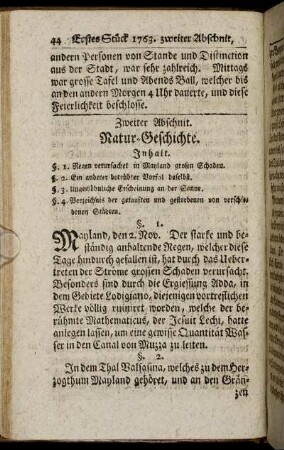 44 Erstes Stück 1763. zweiter Abschnit,
andern Personen von Stande und Distinction
aus der Stadt, war sehr zahlreich. Mittags
war grosse Tafel und Abends Ball, welcher bis
an den andern Morgen 4 Uhr dauerte, und diese
Feierlichkeit beschlosse.
Zweiter Abschnit.
Natur-Geschichte.
Inhalt.
§. 1. Regen verursachet in Mayland grosen Schaden.
§. 2. Ein anderer betrübter Vorfal daselbst.
§. 3. Ungewöhnliche Erscheinung an der Sonne.
§. 4. Verzeichnis der getauften und gestorbenen von verschie-
denen Städten.
§. 1.
Mayland, den 2. Nov. Der starke und be-
ständig anhaltende Regen, welcher diese
Tage hindurch gefallen ist, hat durch das Ueber-
treten der Ströme grossen Schaden verursacht.
Besonders sind durch die Ergiessung Adda, in
dem Gebiete Lodigiano, diejenigen vortreflichen
Werke völlig ruinirt worden, welche der be-
rühmte Mathematicus, der Jesuit Lechi, hatte
anlegen lassen, um eine gewisse Quantität Was-
ser in den Canal von Muzza zu leiten.
§. 2.
In dem Thal Valsasina, welches zu dem Her-
zogthum Mayland gehöret, und an den Grän-
zen